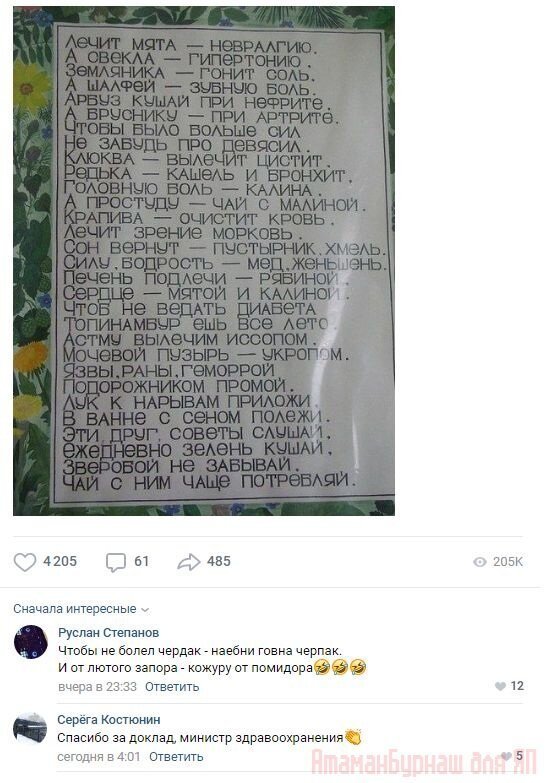 Лечит мята — невралгию.
А свекла — гипертонию.
Земляника — гонит соль,
А шалфей — зубную боль.
Арбуз кушай при нефрите,
А бруснику — при артрите.
Чтобы было больше сил
Не забудь про девясил.
Клюква — вылечит цистит,
Редька — кашель и бронхит,
Головную боль — калина,
А простуду — чай с малиной.
Крапива — очистит кровь,
Лечит зрение морковь.
Сон вернут — пустырник, хмель.
Силу, бодрость — мед, женьшень.
Печень подлечи — рябиной,
Сердце — мятой и калиной.
Чтоб не ведать диабета
Топинамбур ешь все лето.
Астму вылечим иссопом,
Мочевой пузырь — укропом.
Язвы, раны, геморрой
Подорожником промой.
Лук к нарывам приложи,
В ванне с сеном полежи.
Эти друг, советы слушай,
Ежедневно зелень кушай,
Зверобой не забывай,
Чай с ним чаще потребляй.
4 205 61 485 205K
Сначала интересные
Руслан Степанов
Чтобы не болел чердак - наебни говна черпак.
И от лютого запора - кожуру от помидора🤣🤣🤣
вчера в 23:33 Ответить 12
Серёга Костюнин
Спасибо за доклад, министр здравоохранения👏
сегодня в 4:01 Ответить 5
АтаманБурнаш для ЯП